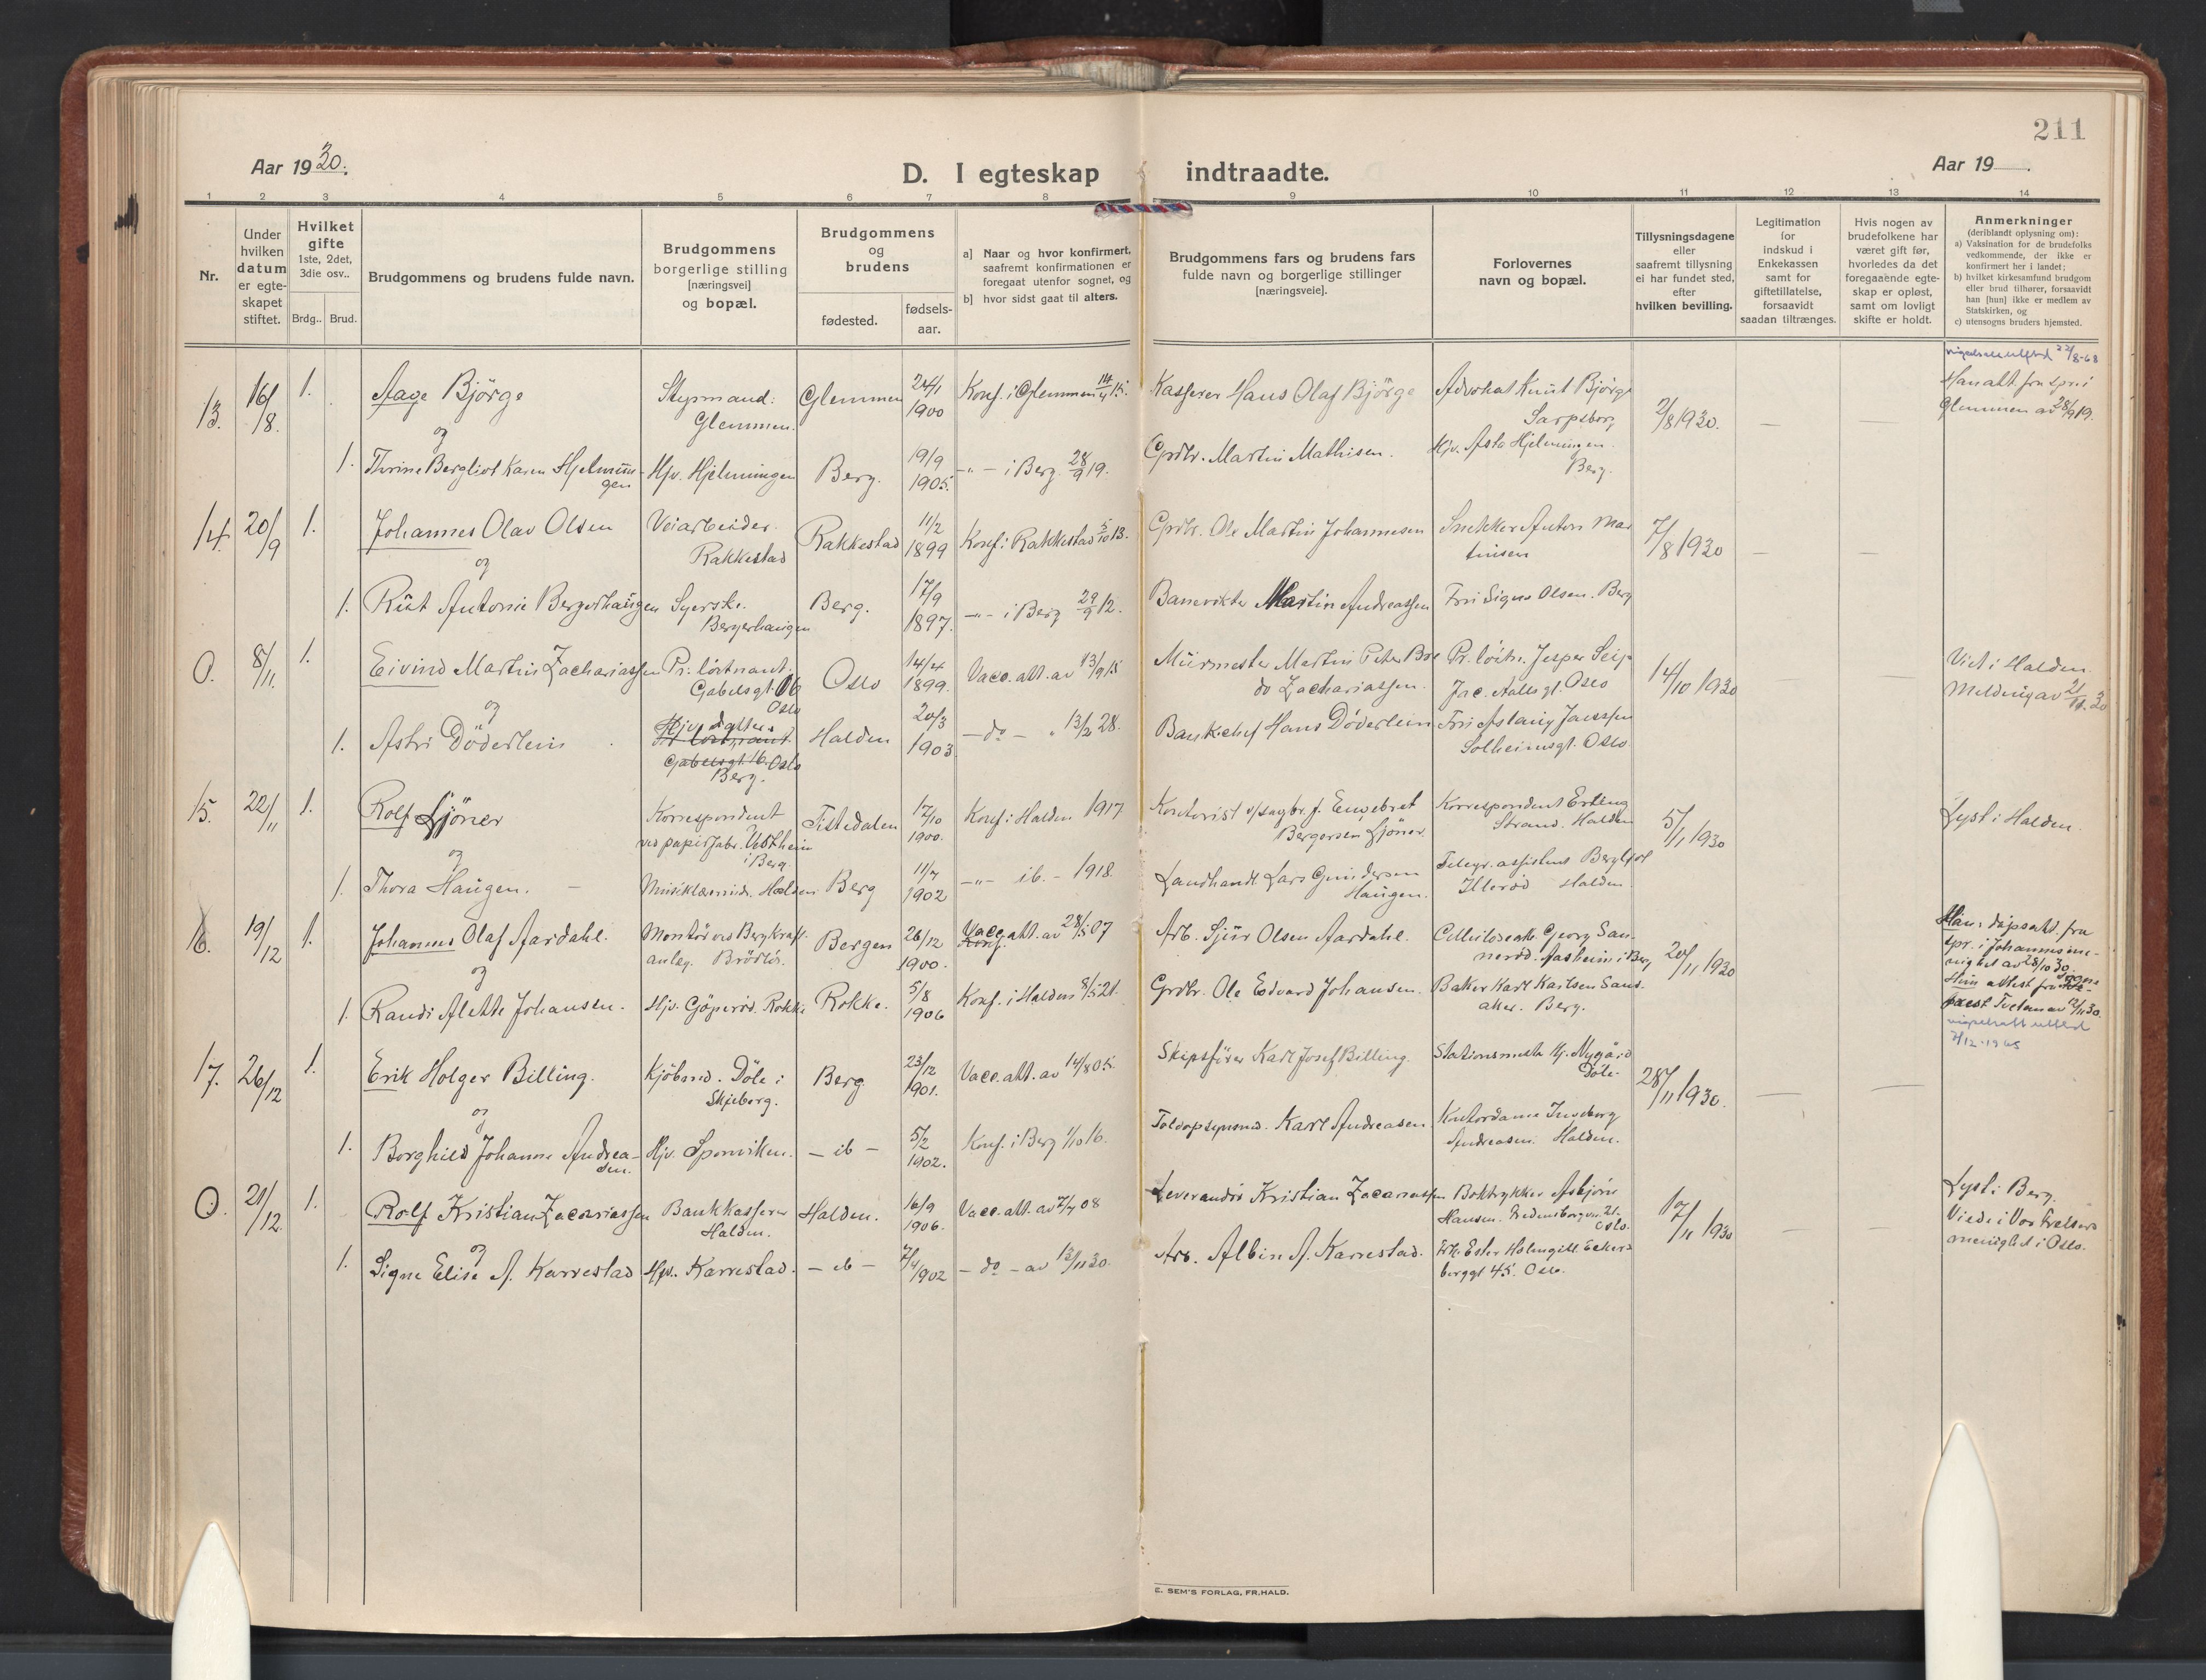 211
Aar 1930.
D. I egteskap indtraadte.
Aar 19
1 2 3 4 5 6 7 8 9 10 11 12 13 14
Nr.
Under hvilken datum er egteskapet stiftet.
Hvilket gifte 1ste, 2det, 3die osv..
Brdg.. Brud.
Brudgommens og brudens fulde navn.
Brudgommens borgerlige stilling [næringsvei] og bopæl.
Brudgommens og brudens
fødested.
fødselsaar.
a] Naar og hvor konfirmert, saafremt konfirmationen er foregaat utenfor sognet, og
b] hvor sidst gaat til alters.
Brudgommens fars og brudens fars fulde navn og borgerlige stillinger [næringsveie].
Forlovernes navn og bopæl.
Tillysningsdagene eller saafremt tillysning ei har fundet sted, efter hvilken bevilling.
Legitimation for indskud i Enkekassen samt for giftetillatelse, forsaavidt saadan tiltrænges.
Hvis nogen av brudefolkene har været gift før, hvorledes da det foregaaende egteskap er opløst, samt om lovligt skifte er holdt.
Anmerkninger
(deriblandt oplysning om):
a) Vaksination for de brudefolks vedkommende, der ikke er konfirmert her i landet;
b) hvilket kirkesamfund brudgom eller brud tilhører, forsaavidt han [hun] ikke er medlem av Statskirken, og
c) utensogns bruders hjemsted.
22/8-68
13. 16/8. 1. Aage Bjørge Styrmand: Glemmen. Glemmen 24/1 1900 Konf. i Glemmen 14/4 15. Kasserer Hans Olaf Bjørge Advokat Knut Bjørge Sarpsborg 2/8 1930. — — Han att. fra spr. i Glemmen av 28/9 19.
og
1. Thrine Bergliot Karen Hjelmungen Hjv. Hjelmungen Berg. 19/9 1905. -"- i Berg. 28/9 19. Grdbr. Martin Mathisen. Hjv. Asta Hjelmungen. Berg.
14. 20/9 1. Johannes Olav Olsen Veiarbeider. Rakkestad Rakkestad 11/2 1899 Konf. i Rakkestad 5/10 13. Grdbr. Ole Martin Johannesen Snekker Anton Martinsen 7/8 1930 — —
og
1. Rut Antonie Bergerhaugen Syerske. Bergerhaugen Berg. 17/9 1897. -"- i Berg 29/9 12. Banevokter Martin Andreassen Fru Signe Olsen. Berg
O. 8/11. 1. Eivind Martin Zachariassen Pr. løitnant. Gabelsgt. 16 Oslo Oslo 14/4 1899. Vacc. att. av 13/9 15 Murmester Martin Peter Bredo Zachariassen. Pr. løitn. Jesper Seip Jac. Aallsgt. Oslo 14/10 1930 Viet i Halden. Melding av 21/11 30
og
1. Astri Döderlein Hjv. datter. Pr. løitnant Gabelsgt. 16. Oslo Berg. Halden 20/3 1903 — do — " 13/2 28. Bankchef Hans Döderlein Fru Aslaug Janssen Solheimsgt. Oslo
15. 22/11 1. Rolf Ljöner Korrespondent ved papirfabr. Vestheim i Berg. Tistedalen 17/10 1900. Konf. i Halden 1917 Kontorist v/sagbr. f. Engebret Bergersen Ljöner. Korrespondent Erling Strand. Halden 5/11 1930 Lyst i Halden.
og
1. Thora Haugen. Musiklærerinde. Halden Berg 11/7 1902 -"- ib. - 1918. Landhandl. Lars Gundersen Haugen. Telegr. assistent Bergljot Illeröd Halden
16. 19/12 1. Johannes Olaf Aardahl. Montör ved Berg kraftanlæg. Brödlös. Bergen 26/12 1900. Konf. Vacc. att. av 28/5 07 Arb. Sjur Olsen Aardahl. Celluloseatb. Georg Sannerød. Aasheim i Berg 20/11 1930 Han: dåpsatt. fra spr. i Johannes menighet av 28/10 30. Hun attest fra sogneprest Tvetan av 12/11 30.
og
1. Randi Alette Johansen. Hjv. Göperöd. Rokke Rokke. 5/8 1906 Konf. i Halden 8/5 21. Grdbr. Ole Edvard Johansen. Baker Karl Karlsen Sandaker. Berg.
2/12-1965
17. 26/12 1. Erik Holger Billing. Kjöbmd. Döle i Skjeberg. Berg 23/12 1901. Vacc. att. av 14/8 05. Skipsförer Karl Josef Billing. Stationsmester Hj. Nygård Döle. 28/11 1930. — —
og
1. Borghild Johanne Andreasen. Hjv. Sponviken. — ib — 5/2 1902. Konf. i Berg 1/10 16. Toldopsynsmd. Karl Andreasen Kontordame Ingeborg Andreasen. Halden.
O. 21/12 1. Rolf Kristian Zacariassen Bankkasserer Halden. Halden. 16/9 1906. Vacc. att. av 2/7 08 Leverandör Kristian Zacariassen Boktrykker Asbjörn Hansen. Fredensborgvn. 21. Oslo. 17/11 1930 Lyst i Berg. Viede i Vor Frelsers menighet i Oslo.
og
1. Signe Elise A. Karrestad Hjv. Karrestad. — ib — 7/4 1902 — do — av 13/11 30. Arb. Albin A. Karrestad. Frk. Ester Holmgill. Eckersberggt 45. Oslo.
E. SEM'S FORLAG, FR.HALD.